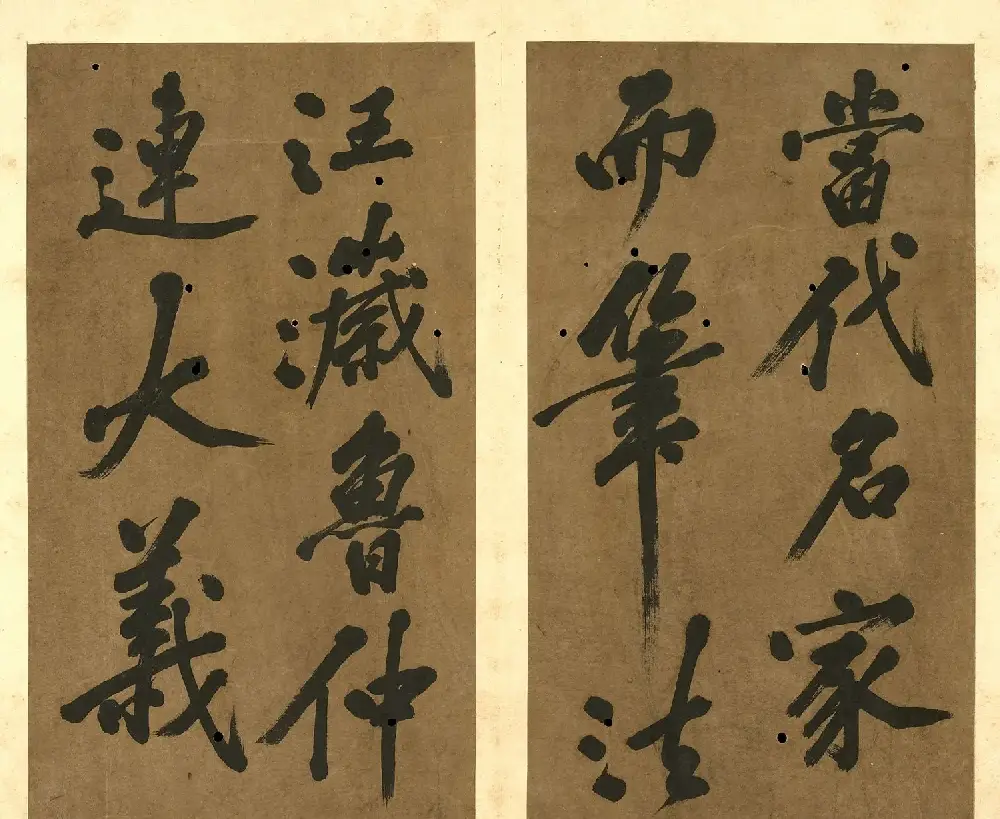 當代名家
而筆法
汪濊魯仲
連大義